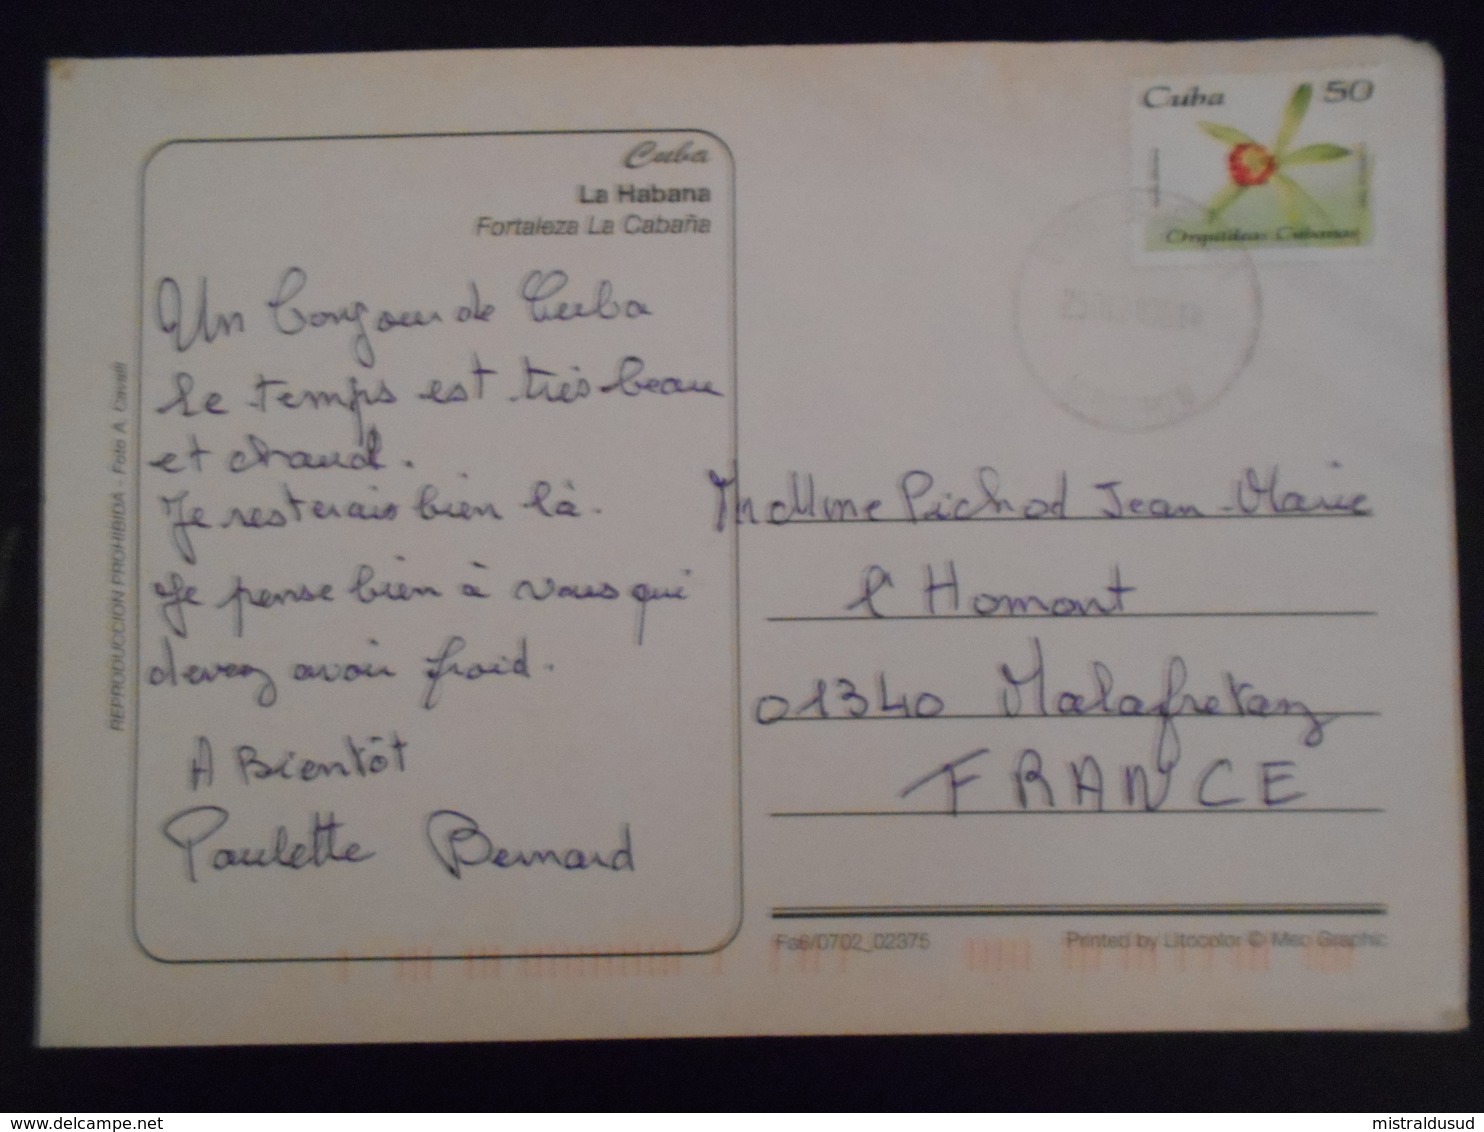 Cuba
La Habana
Fortaleza La Cabaña
Un bonjour de Cuba
Le temps est très beau
et chaud.
Je resterais bien là.
Je pense bien à vous qui
devez avoir froid.
A Bientôt
Paulette Bernard
REPRODUCCION PROHIBIDA - Foto A. Cavalli
Cuba 50
Orquídeas Cubanas
M et Mme Pichod Jean-Marie
l'Homont
01340 Malafretaz
FRANCE
Fa6/0702_02375
Printed by Litocolor © Mec Graphic
delcampe.net
mistraldusud